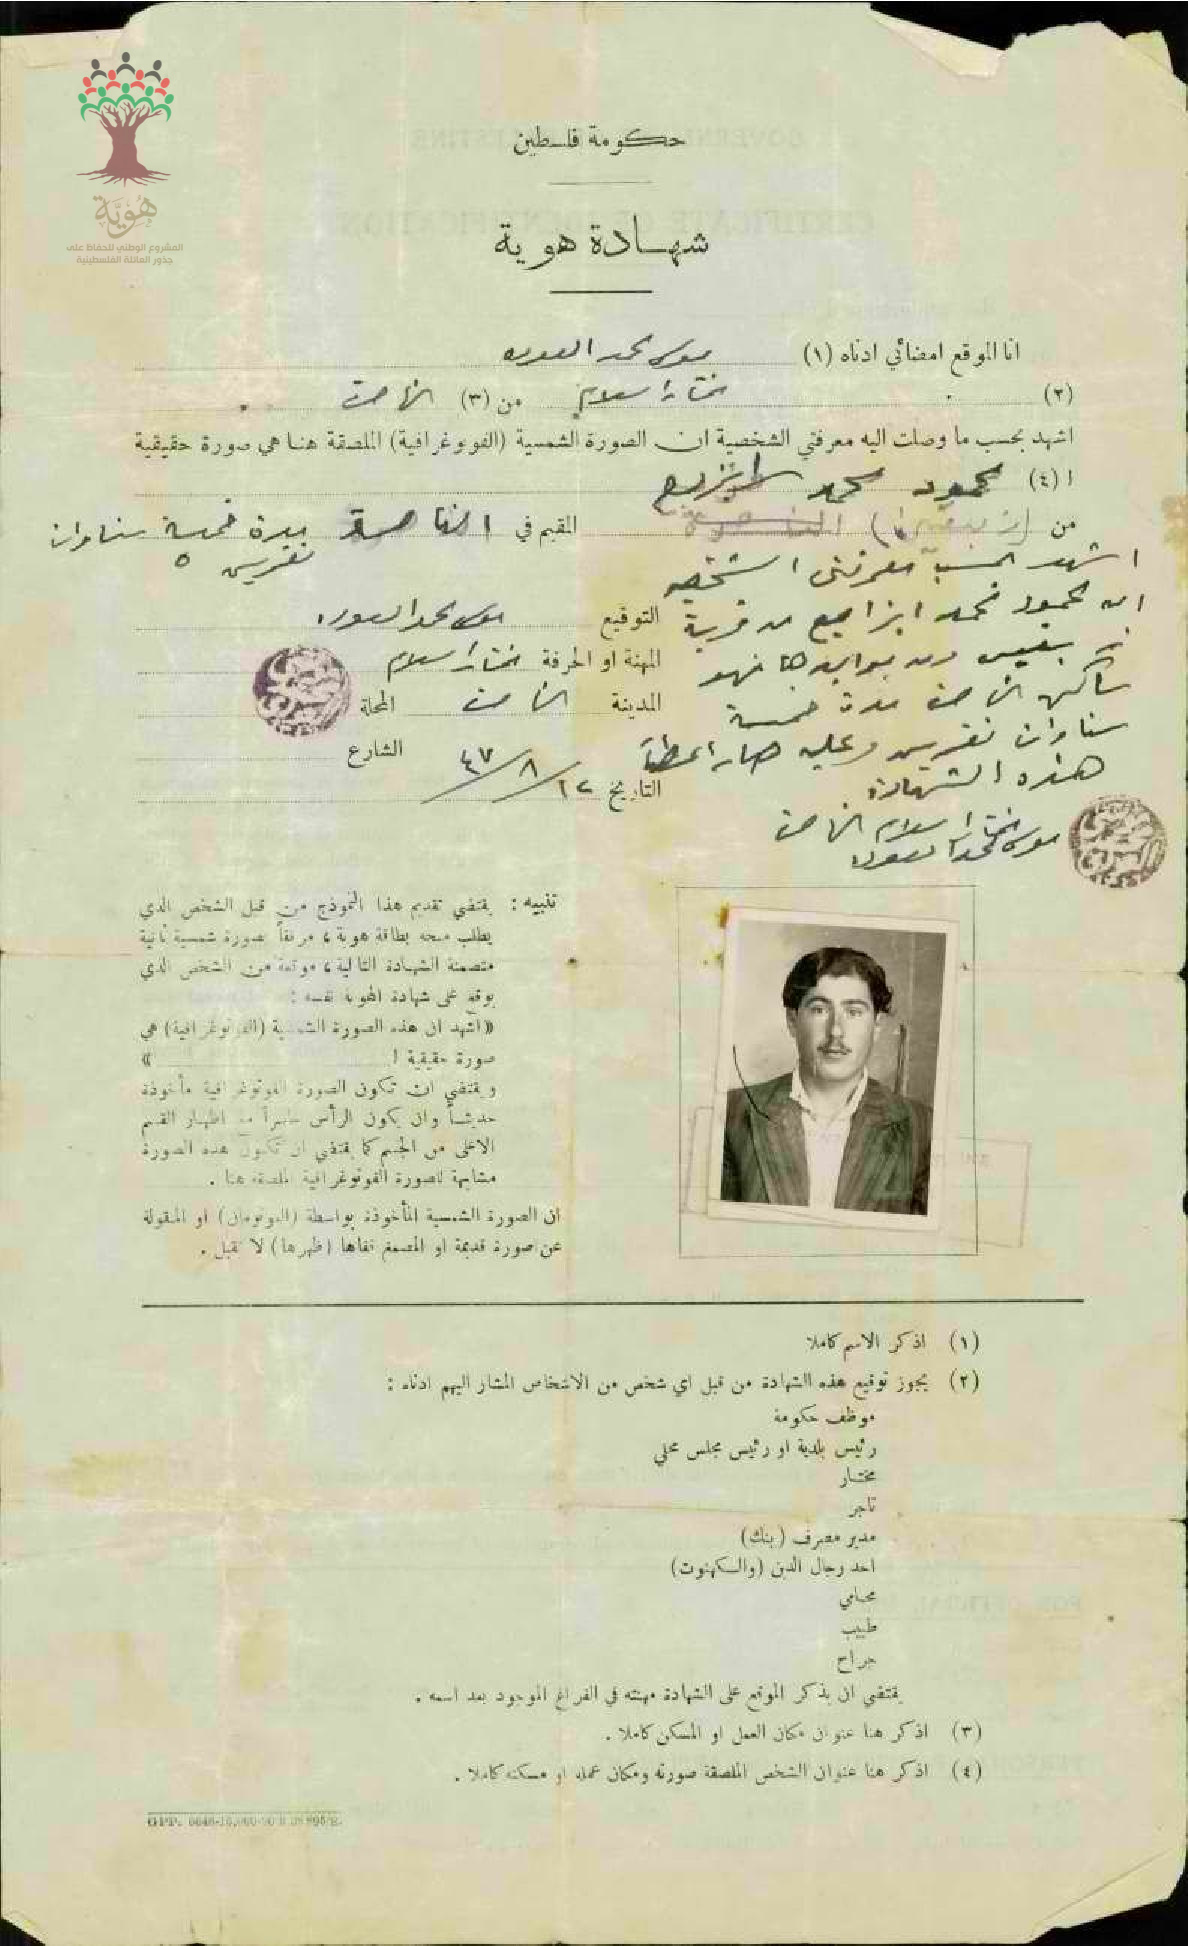 هُوِيَّة
المشروع الوطني للحفاظ على
جذور العائلة الفلسطينية
حكومة فلسطين
شهادة هوية
انا الموقع امضائي ادناه (١) موسى محمد
(٢) مختار اسلام من (٣) الناصرة
اشهد بحسب ما وصلت اليه معرفتي الشخصية ان الصورة الشمسية (الفوتوغرافية) الملصقة هنا هي صورة حقيقية
ا (٤) محمود محمد
من الناصرة المقيم في الناصرة مدة خمسة سناوان
تقريبن ٥
اشهد حسب معرفتي الشخصيه
ان محمود محمد من قرية
ومن مواليدها فهو
ساكن الناصرة مدة خمسة
سناوان تقريبن وعليه صار اعطاء
هذه الشهادة
مختار اسلام الناصرة
موسى محمد
التوقيع موسى محمد
المهنة او الحرفة مختار اسلام
المدينة الناصرة المحلة
الشارع
التاريخ ١٢/٨/٤٧
تنبيه : يقتضي تقديم هذا النموذج من قبل الشخص الذي
يطلب منحه بطاقة هوية ، مرفقاً بصورة شمسية ثانية
متضمنة الشهادة التالية ، موقعة من الشخص الذي
يوقع على شهادة الهوية نفسه :
«اشهد ان هذه الصورة الشمسية (الفوتوغرافية) هي
صورة حقيقية ا »
ويقتضي ان تكون الصورة الفوتوغرافية مأخوذة
حديثاً وان يكون الرأس حاسراً مع اظهار القسم
الاعلى من الجسم كما يقتضي ان تكون هذه الصورة
مشابهة للصورة الفوتوغرافية الملصقة هنا .
ان الصورة الشمسية المأخوذة بواسطة (البوتومان) او المنقولة
عن صورة قديمة او المصمغ قفاها (ظهرها) لا تقبل .
(١) اذكر الاسم كاملا
(٢) يجوز توقيع هذه الشهادة من قبل اي شخص من الاشخاص المشار اليهم ادناه :
موظف حكومة
رئيس بلدية او رئيس مجلس محلي
مختار
تاجر
مدير مصرف (بنك)
احد رجال الدين (والكهنوت)
محامي
طبيب
جراح
يقتضي ان يذكر الموقع على الشهادة مهنته في الفراغ الموجود بعد اسمه .
(٣) اذكر هنا عنوان مكان العمل او المسكن كاملا .
(٤) اذكر هنا عنوان الشخص الملصقة صورته ومكان عمله او مسكنه كاملا .